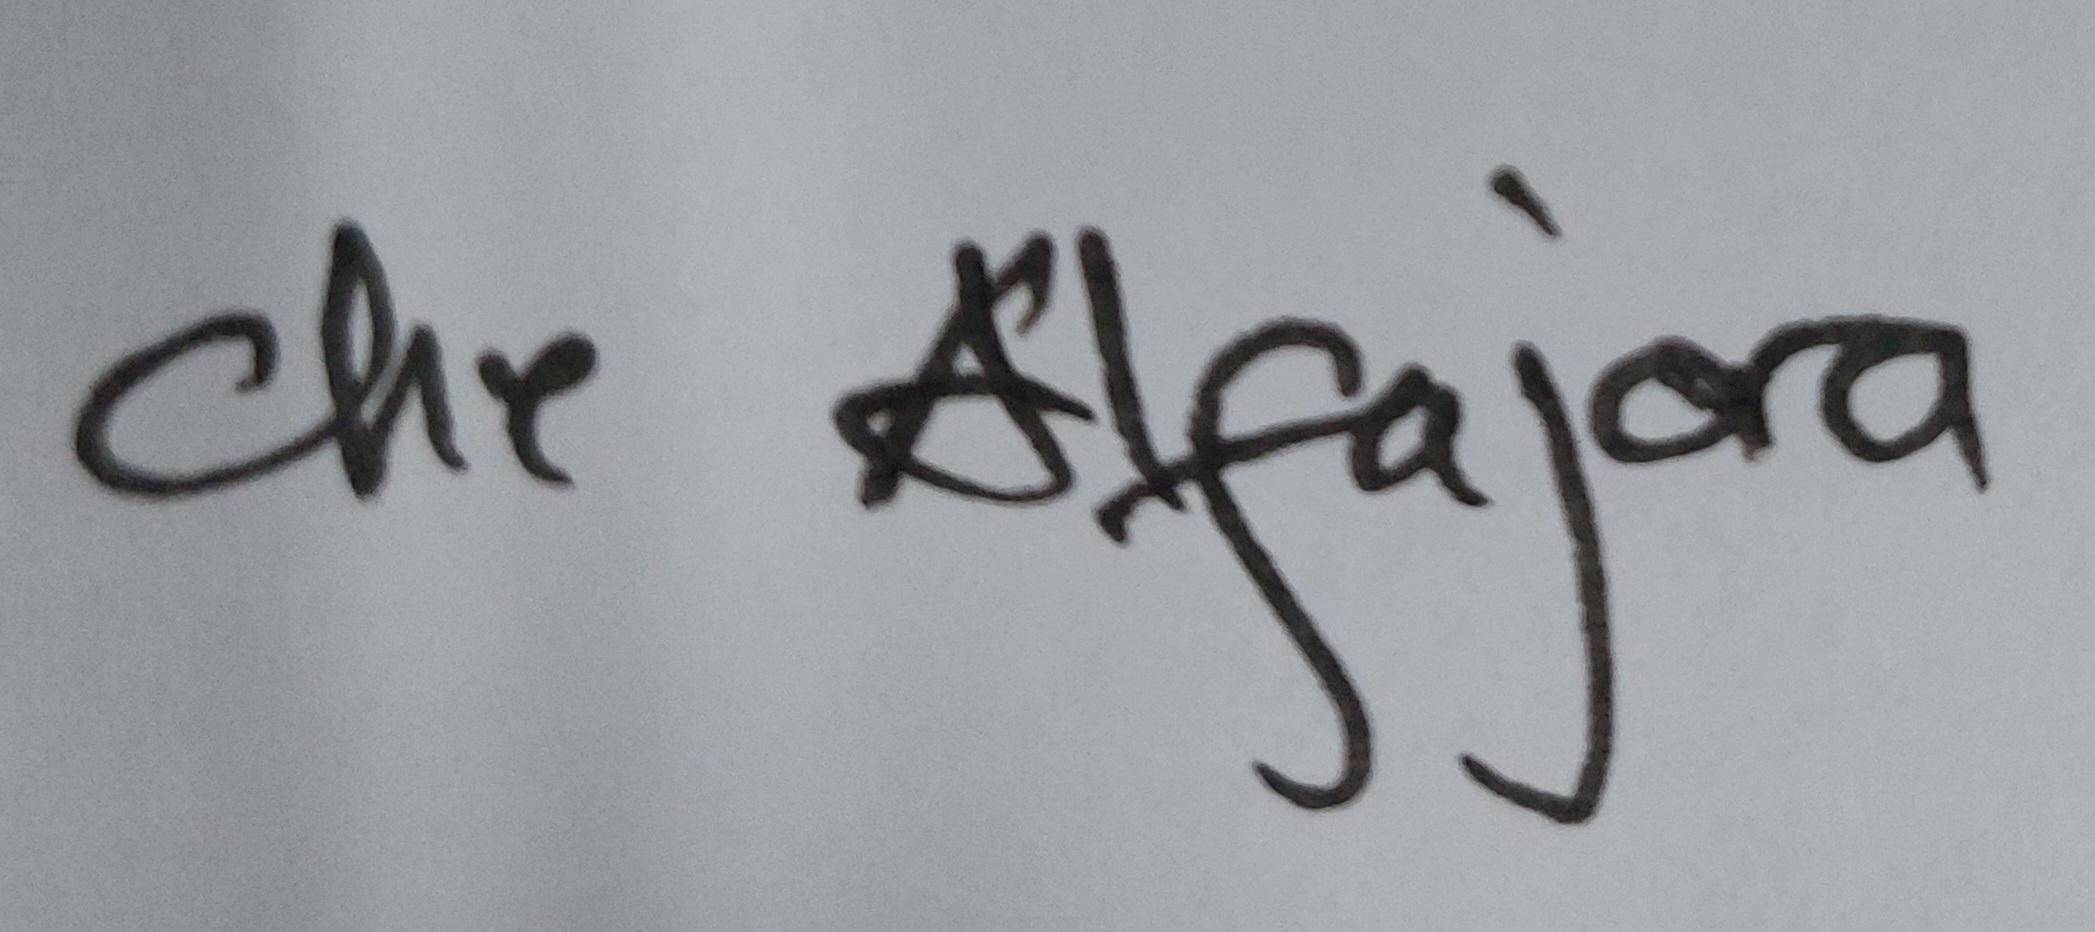 Che Alfajora